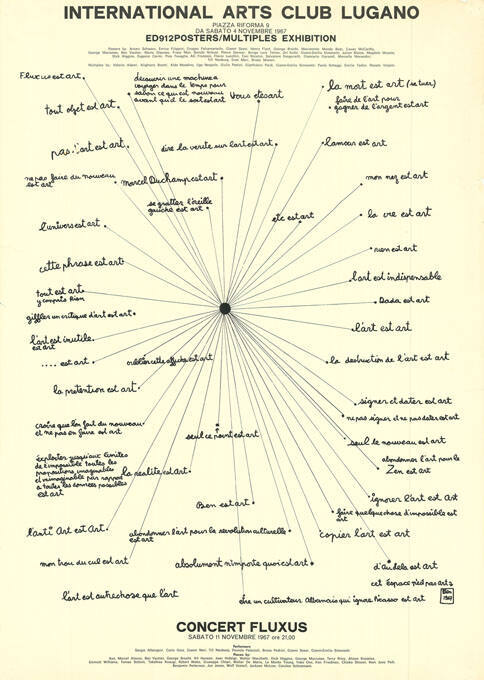 INTERNATIONAL ARTS CLUB LUGANO
PIAZZA RIFORMA 9
DA SABATO 4 NOVEMBRE 1967
ED912POSTERS/MULTIPLES EXHIBITION
Fluxus est art.
découvrir une machine a
voyager dans le temps pour
savoir ce qui est nouveau
avant qu'il ce soit est art
Vous etes art
la mort est art (se tuer)
faire de l'art pour
gagner de l'argent est art
tout objet est art
pas d'art est art.
dire la verite sur l'art est art.
l'amour est art
ne pas faire du nouveau
est art
marcel Duchamp est art
mon nez est art
se gratter l'oreille
gauche est art
etc est art
la vie est art
l'univers est art
rien est art
cette phrase est art
l'art est indispensable
tout est art
y compris Rien
Dada est art
gifler un critique d'art est art
l'art est art
l'art est inutile
est art
.... est art
oublier cette affiche est art
la destruction de l'art est art
la pretention est art
signer et dater est art
ne pas signer et ne pas dater est art
croire que l'on fait du nouveau
et ne pas en faire est art
seul ce point est art
seul le nouveau est art
exploiter jusqu'aux limites
de l'impossible toutes les
propositions imaginables
et inimaginables par rapport
a toutes les données possibles
est art
la realité est art
abandonner l'art pour le
Zen est art
Ben est art
ignorer l'art est art
faire quelque chose d'impossible est
art
l'anti Art est Art
abandonner l'art pour la revolution culturelle
est art
copier l'art est art
mon trou du cul est art
absolument n'importe quoi est art
d'audela est art
cet espace n'est pas art
l'art est autre chose que l'art
être un cultivateur Albanais qui ignore Picasso est art
Ben
1967
CONCERT FLUXUS
SABATO 11 NOVEMBRE 1967 ore 21,00
Performers
Pieces by: